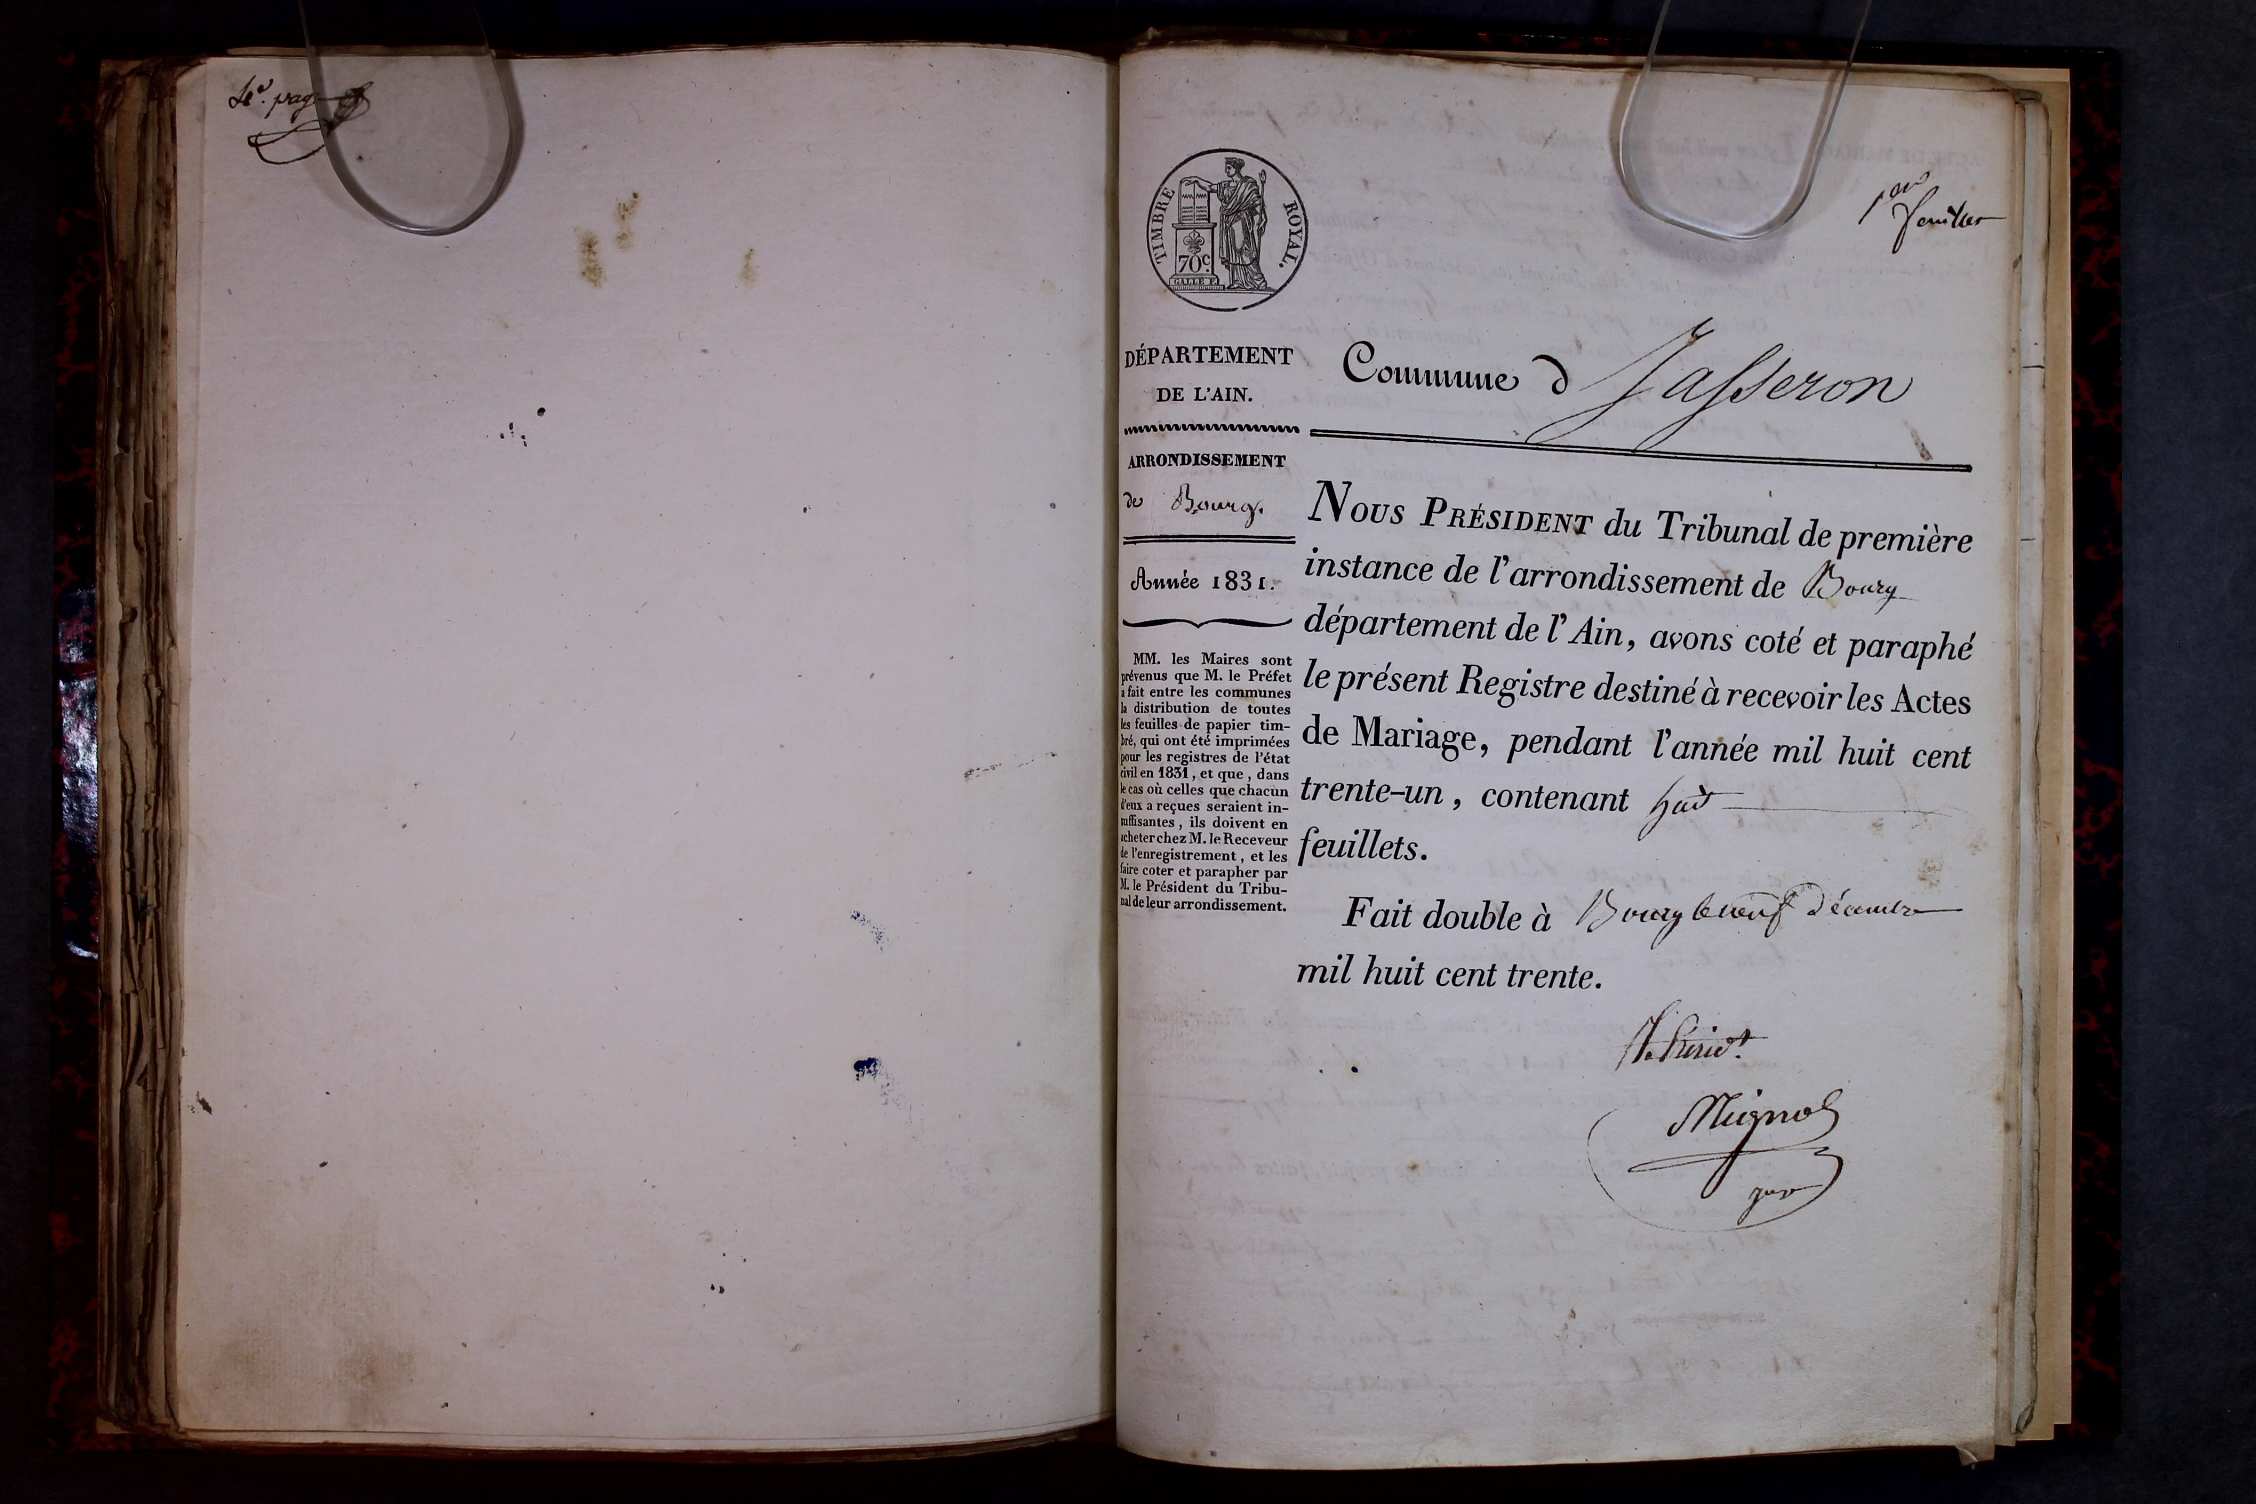 TIMBRE ROYAL.
70c.
GALLE F.
1er
feuillet
DÉPARTEMENT
DE L'AIN.
ARRONDISSEMENT
de Bourg.
Année 1831.
MM. les Maires sont
prévenus que M. le Préfet
a fait entre les communes
la distribution de toutes
les feuilles de papier tim-
bré, qui ont été imprimées
pour les registres de l'état
civil en 1831, et que, dans
le cas où celles que chacun
d'eux a reçues seraient in-
suffisantes, ils doivent en
acheter chez M. le Receveur
de l'enregistrement, et les
faire coter et parapher par
M. le Président du Tribu-
nal de leur arrondissement.
Commune d Jasseron
NOUS PRÉSIDENT du Tribunal de première
instance de l'arrondissement de Bourg
département de l'Ain, avons coté et paraphé
le présent Registre destiné à recevoir les Actes
de Mariage, pendant l'année mil huit cent
trente-un, contenant huit
feuillets.
Fait double à Bourg le neuf Décembre
mil huit cent trente.